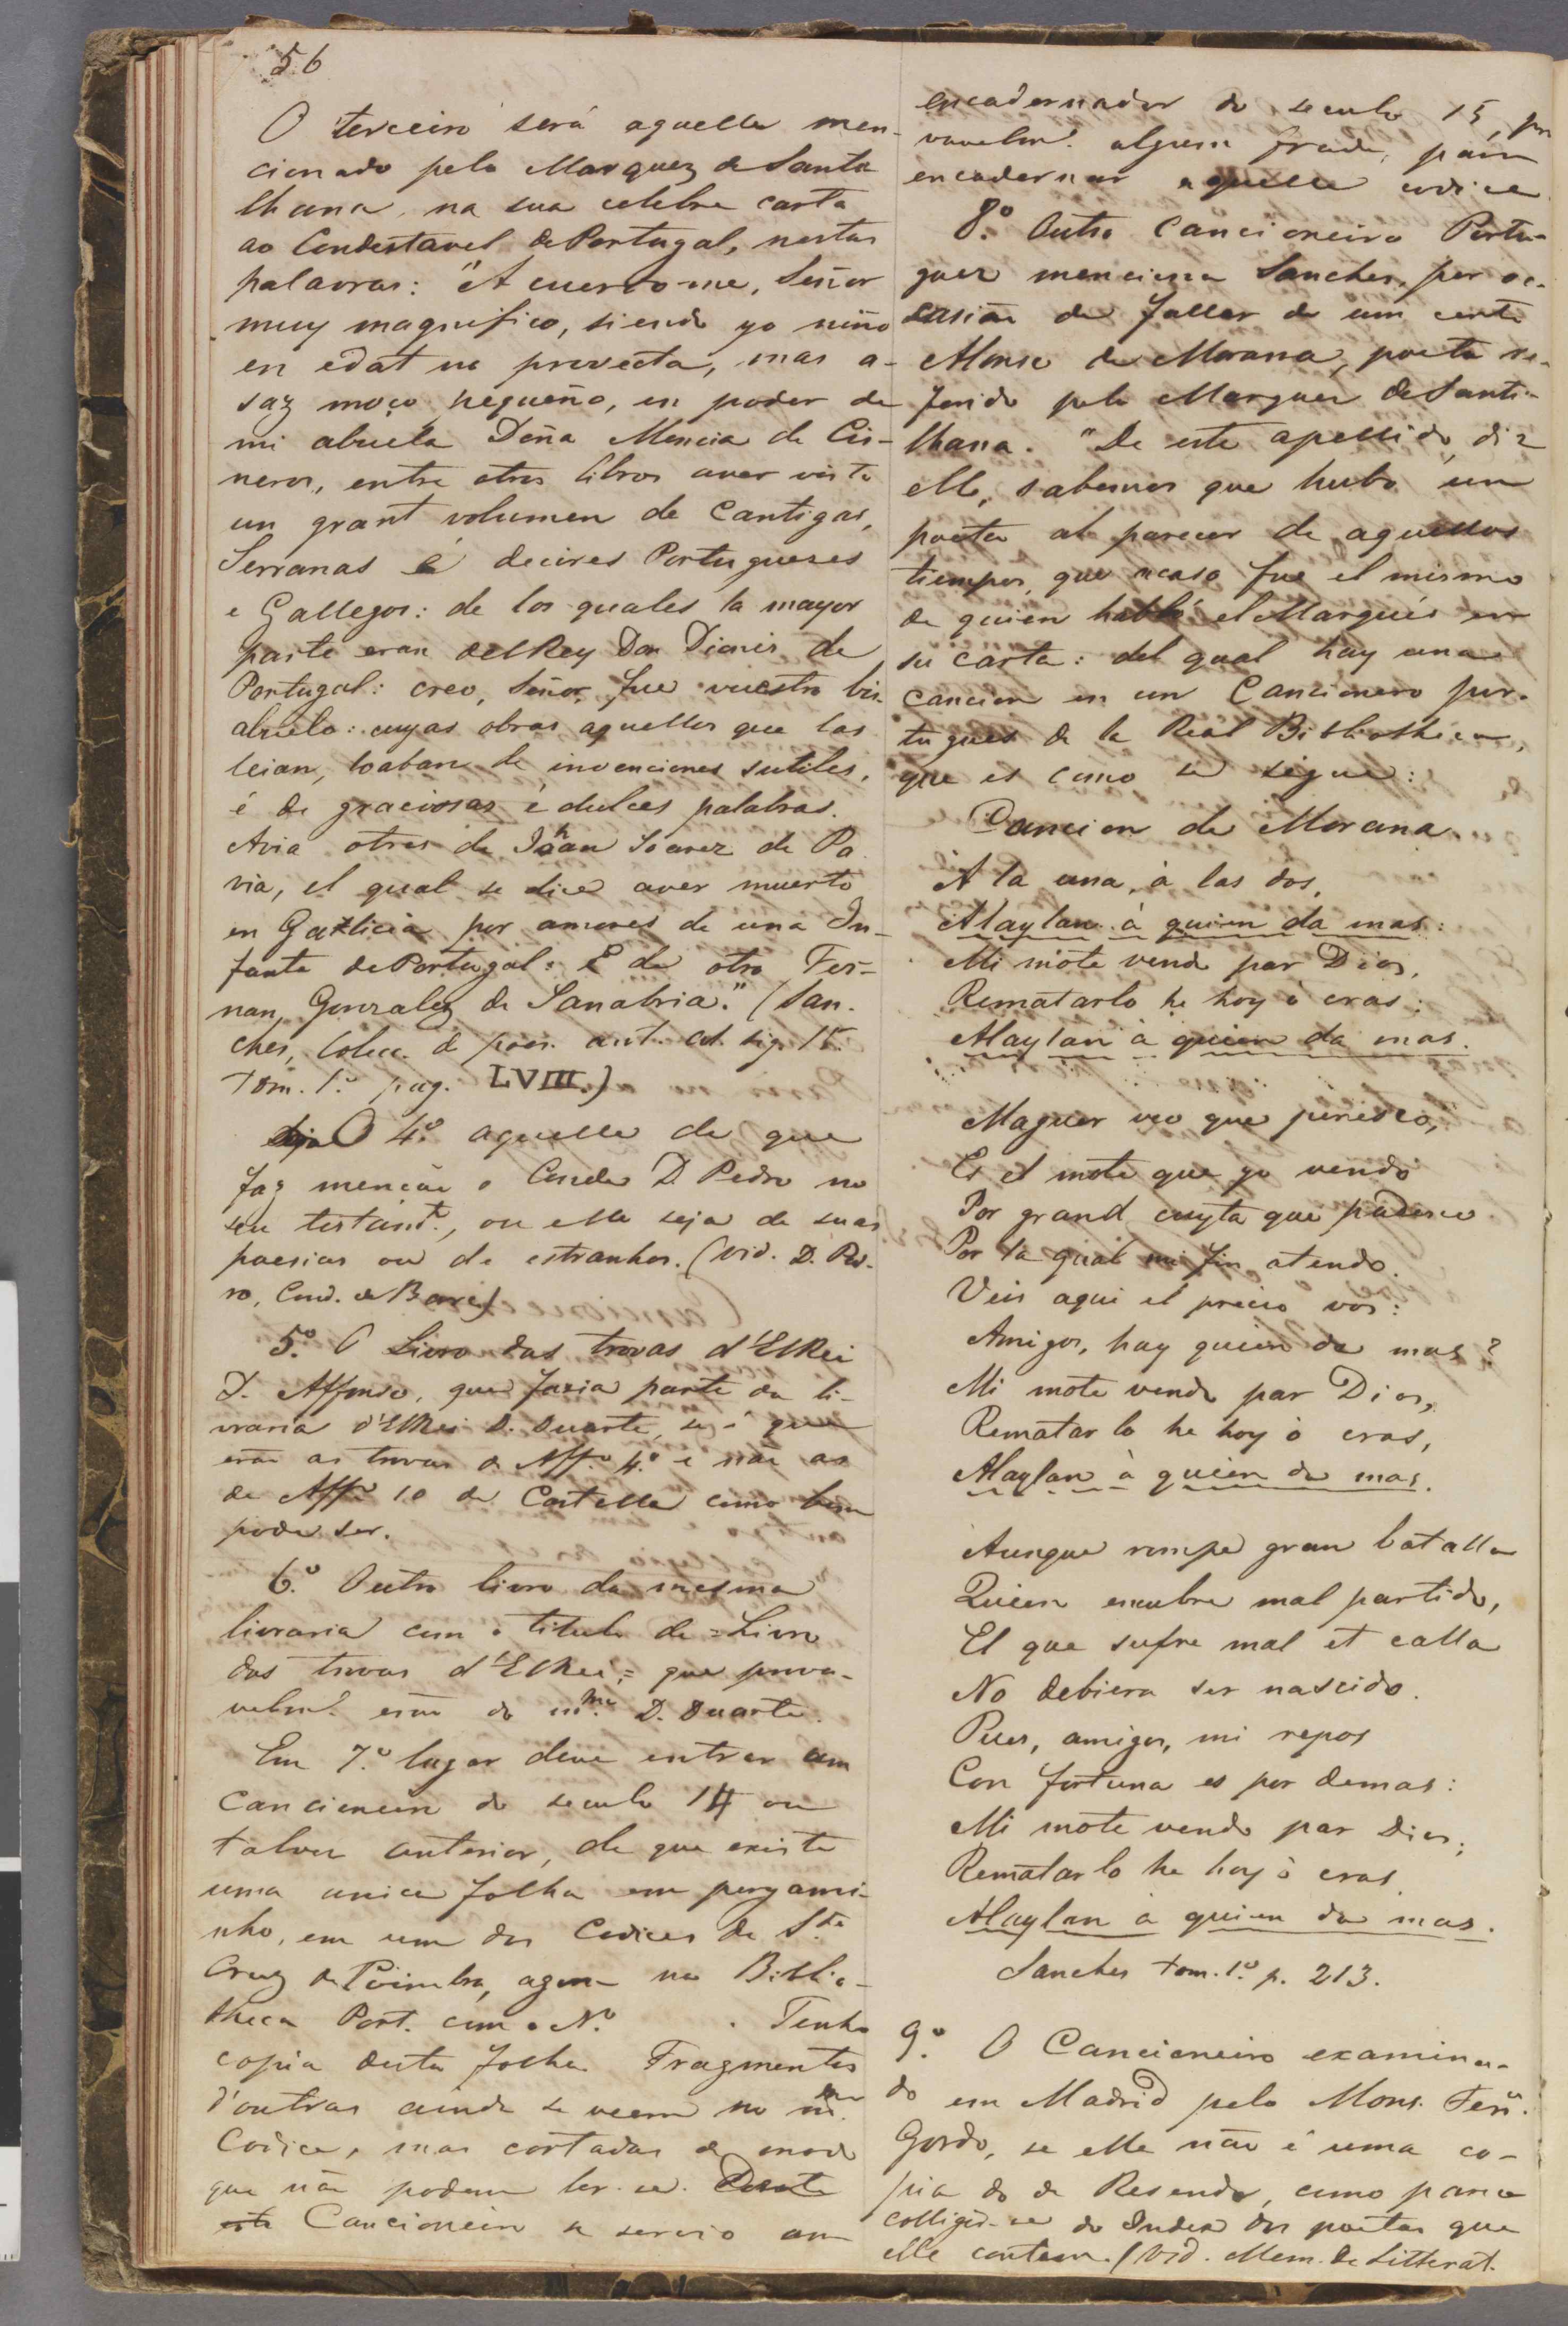 56
O terceiro será aquelle men-
cionado pelo Marquez de Santi
lhana, na sua celebre carta
ao Condestavel de Portugal, nestas
palavras: "Acuerdo-me, Señor
muy magnifico, siendo yo niño
en edat no provecta, mas a-
saz moço pequeño, en poder de
mi abuela Doña Mencia de Cis-
neros, entre otros libros aver visto
un grant volumen de Cantigas,
Serranas é decires Portugueses
e Gallegos: de los quales la mayor
parte eran del Rey Don Dionis de
Portugal: creo, Señor, fue vuestro bis-
abuelo: cuyas obras aquellos que las
leian, loaban de invenciones sutiles,
é de graciosas é dulces palabras.
Avia otras de Johan Soarez de Pa
via, el qual se dice aver muerto
en Galicia por amores de una In-
fanta de Portugal: E de otro Fer-
nan Gonzalez de Sanabria." (San-
ches, Colecc. de poes. ant. al sig. 15.
tom. 1.º pag. LVIII.)
O 4.º aquelle de que
faz menção o Conde D. Pedro no
seu testamt.º, ou elle seja de suas
poesias ou de estranhos. (Vid. D. Ped-
ro, Cond. de Barc.)
5.º O Livro das trovas d'ElRei
D. Affonso, que fazia parte da li-
vraria d'ElRei D. Duarte, se é que
erão as trovas de Aff.º 4.º e não as
de Aff.º 10 de Castella como bem
pode ser.
6.º Outro livro da mesma
livraria com o titulo de = Livro
das trovas d'ElRei, = que prova-
velmt.e erão do m.mo D. Duarte.
Em 7.º lugar deve entrar um
Cancioneiro do seculo 14 ou
talvez anterior, de que existe
uma unica folha em pergami-
nho, em um dos Codices de S.ta
Cruz de Coimbra, agora na Biblio-
theca Port. com o N.º . Tenho
copia desta folha. Fragmentos
d'outras ainda se veem no m.mo
Codice, mas cortadas de modo
que não podem ler-se. Deste
este Cancioneiro se servio um
encadernador do seculo 15, pro
vavelm.e algum frade, para
encadernar aquelle codice
8.º Outro Cancioneiro Portu-
guez menciona Sanches, por oc-
casião de fallar de um certo
Alonso de Morana, poeta re-
ferido pelo Marquez de Santi-
lhana. "De este apellido, diz
elle, sabemos que hubo un
poeta al parecer de aquellos
tiempos, que acaso fue el mismo
de quien habló el Marqués en
su carta: del qual hay una
cancion en un Cancionero por-
tugues de la Real Bibliotheca,
que es como se sigue:
Cancion de Morana
A la una, à las dos,
Alaylan à quien da mas:
Mi mote vendo par Dios,
Rematarlo he hoy ò cras:
Alaylan à quien da mas.
Maguer veo que peresco,
Es el mote que yo vendo
Por grand cuyta que padesco
Por la qual mi fin atendo.
Veis aqui el precio vos:
Amigos, hay quien da mas?
Mi mote vendo par Dios,
Rematarlo he hoy ò cras,
Alaylan à quien da mas.
Aunque rompe gran batalla
Quien encubre mal partido,
El que sufre mal et calla
No debiera ser nascido.
Pues, amigos, mi repos
Con fortuna es por demas:
Mi mote vendo par Dios;
Rematarlo he hoy ò cras
Alaylan à quien da mas.
Sanches tom. 1.º p. 213.
9.º O Cancioneiro examina-
do em Madrid pelo Mons. Ferr.ª
Gordo, se elle não é uma co-
pia do de Resende, como parece
colligir-se do Index dos poetas que
elle contem. (Vid. Mem. de Litterat.